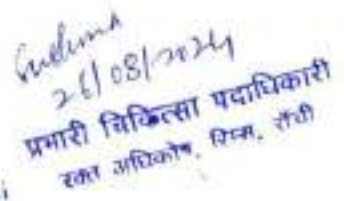 Sushma
26/08/2024
प्रभारी चिकित्सा पदाधिकारी
रक्त अधिकोष, रिम्स, राँची